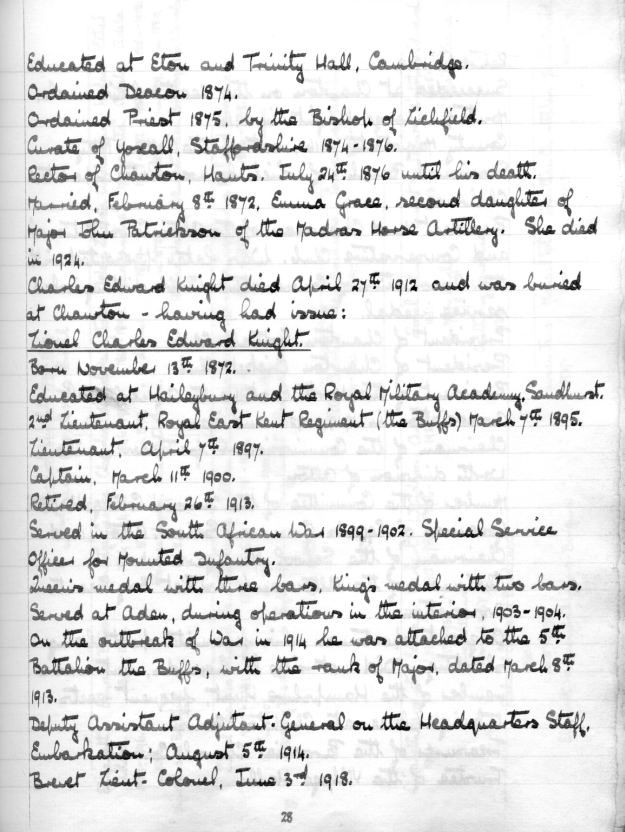 Educated at Eton and Trinity Hall, Cambridge.
Ordained Deacon 1874.
Ordained Priest 1875, by the Bishop of Lichfield.
Curate of Yoxall, Staffordshire 1874-1876.
Rector of Chawton, Hants. July 24th 1876 until his death.
Married, February 8th 1872, Emma Grace, second daughter of
Major John Patrickson of the Madras Horse Artillery. She died
in 1924.
Charles Edward Knight died April 27th 1912 and was buried
at Chawton - having had issue:
Lionel Charles Edward Knight.
Born November 13th 1872.
Educated at Haileybury and the Royal Military Academy, Sandhurst.
2nd Lieutenant, Royal East Kent Regiment (the Buffs) March 7th 1895.
Lieutenant, April 7th 1897.
Captain, March 11th 1900.
Retired, February 26th 1913.
Served in the South African War 1899-1902. Special Service
Officer for Mounted Infantry.
Queen's medal with three bars, King's medal with two bars.
Served at Aden, during operations in the interior, 1903-1904.
On the outbreak of War in 1914 he was attached to the 5th
Battalion the Buffs, with the rank of Major, dated March 8th
1913.
Deputy Assistant Adjutant-General on the Headquarters Staff,
Embarkation; August 5th 1914.
Brevet Lieut-Colonel, June 3rd 1918.
28